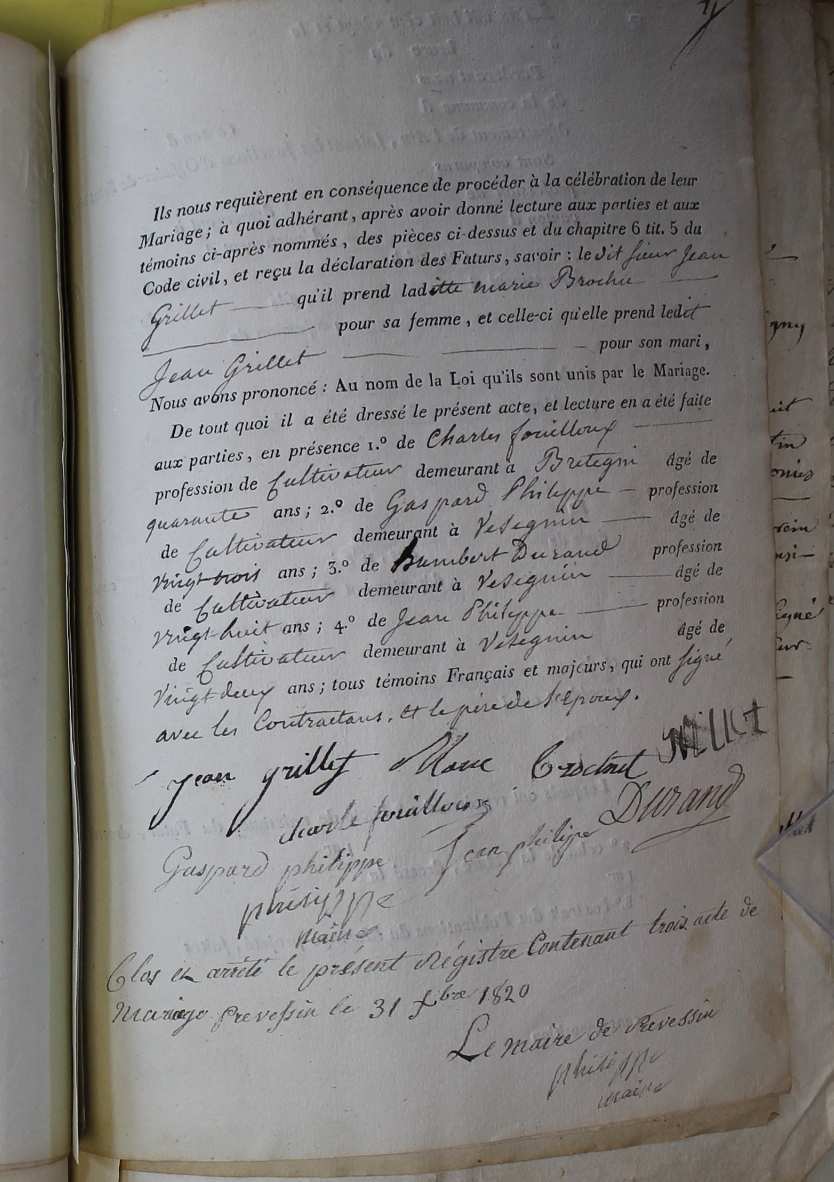 Ils nous requièrent en conséquence de procéder à la célébration de leur
Mariage; à quoi adhérant, après avoir donné lecture aux parties et aux
témoins ci-après nommés, des pièces ci-dessus et du chapitre 6 tit. 5 du
Code civil, et reçu la déclaration des Futurs, savoir: le dit sieur Jean
Grillet qu'il prend ladite marie Brochu
pour sa femme, et celle-ci qu'elle prend ledit
Jean Grillet pour son mari,
Nous avons prononcé: Au nom de la Loi qu'ils sont unis par le Mariage.
De tout quoi il a été dressé le présent acte, et lecture en a été faite
aux parties, en présence 1.º de Charles fouilloux
profession de Cultivateur demeurant à Bretegni âgé de
quarante ans; 2.º de Gaspard Philippe profession
de Cultivateur demeurant à Vesegnin âgé de
vingt trois ans; 3.º de humbert Durand profession
de Cultivateur demeurant à Vesegnin âgé de
vingt huit ans; 4.º de Jean Philippe profession
de Cultivateur demeurant à Vesegnin âgé de
vingt deux ans; tous témoins Français et majeurs, qui ont signé
avec les Contractans, et le père de l'Epoux.
jean grillet
charle fouilloux Durand
Gaspard philippe Jean philipe
philippe
maire
Clos et arrêté le présent Régistre Contenant trois acte de
Mariage prevessin le 31 Xbre 1820
Le maire de Prevessin
philippe
maire